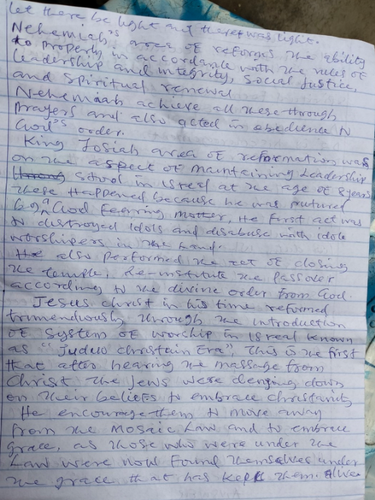 let there be light and there was light.
Nehemiah's area of reforms the ability
to properly in accordance with the rules of
leadership and integrity, social justice,
and spiritual renewal
Nehemaah achieve all these through
prayers and also acted in obedience to
God's order.
King Josiah area of reformation was
on the aspect of maintaining leadership
stood in Isreal at the age of 8 years
these happened because he was nutured
by a God fearing mother, He first act was
to distroyed idols and disabuse with idole
worshipers in the land.
He also performed the act of closing
the temple, Re-institute the passover
according to the divine order from God.
Jesus Christ in his time reformed
trumendiously through the introduction
of system of worship in Isreal known
as "Judeo Christain Era" This is the first
that after hearing the massage from
Christ. the Jews were denging down
on their beliefs to embrace christianity
He encourage them to move away
from the Mosaic Law and to embrace
grace, as those who were under the
Law were now found themselves under
the grace that has kept them. Alive